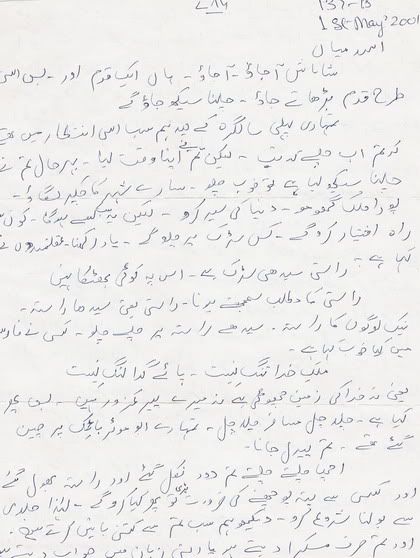 ۷۸۶
137-B
1st May' 200
اسد میاں
شاباش آ جاؤ - آ جاؤ - ہاں ایک قدم اور - بس اسی
طرح قدم بڑھاتے جاؤ - چلنا سیکھ جاؤ گے
تمہاری پہلی سالگرہ کے بعد ہم سب اسی انتظار میں تھے
کہ تم اب چلے کہ تب - لیکن تم نے اپنا وقت لیا - بہرحال تم نے
چلنا سیکھ لیا ہے تو خوب چلو - سارے شہر کا چکر لگاؤ -
پورا ملک گھومو - دنیا کی سیر کرو - لیکن یہ کیسے ہوگا - کون
راہ اختیار کرو گے - کس سڑک پر چلو گے - یاد رکھنا - عقلمندوں نے
کہا ہے -
راستی سیدھی سڑک ہے - اس پہ کوئی کھٹکا نہیں
راستی کا مطلب سمجھتے ہو نا - راستی یعنی سیدھا راستہ -
نیک لوگوں کا راستہ - سیدھے راستہ پر چلے چلو - کسی نے فارسی
میں کیا خوب کہا ہے -
ملک خدا تنگ نیست - پائے گدا لنگ نیست
یعنی نہ خدا کی زمین چھوٹی ہے نہ میرے پیر کمزور ہیں - بس
کہا ہے - چلا چل مسافر چلا چل - تمہارے ابو موٹر بائیک پر چین
گئے تھے - تم پیدل جانا -
اچھا چلتے چلتے تم دور نکل گئے اور راستہ بھول گئے
اور کسی سے پتہ پوچھنے کی ضرورت پڑی تو کیا کرو گے - لہٰذا جلدی
سے بولنا شروع کرو - دیکھو ہم سب تم سے کتنی باتیں کرتے ہیں -
اور تم صرف مسکرا دیتے ہو یا اپنی زبان میں جواب دیتے